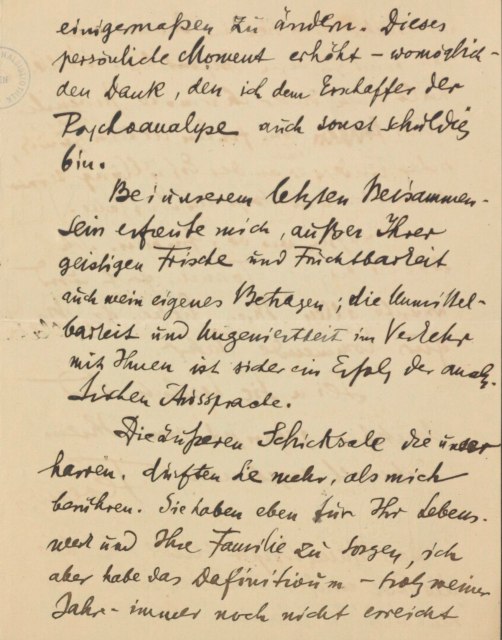 einigermaßen zu ändern. Dieses
persönliche Moment erhöht – womöglich –
den Dank, den ich dem Erschaffer der
Psychoanalyse auch sonst schuldig
bin.
Bei unserem letzten Beisammen-
sein erfreute mich, außer Ihrer
geistigen Frische und Fruchtbarkeit
auch mein eigenes Betragen; die Unmittel-
barkeit und Ungeniertheit im Verkehr
mit Ihnen ist sicher ein Erfolg der analy-
tischen Aussprache.
Die äußeren Schicksale die unser
harren, dürften Sie mehr, als mich
berühren. Sie haben eben für Ihr Lebens-
werk und Ihre Familie zu sorgen, ich
aber habe das Definitivum – trotz meiner
Jahre – immer noch nicht erreicht